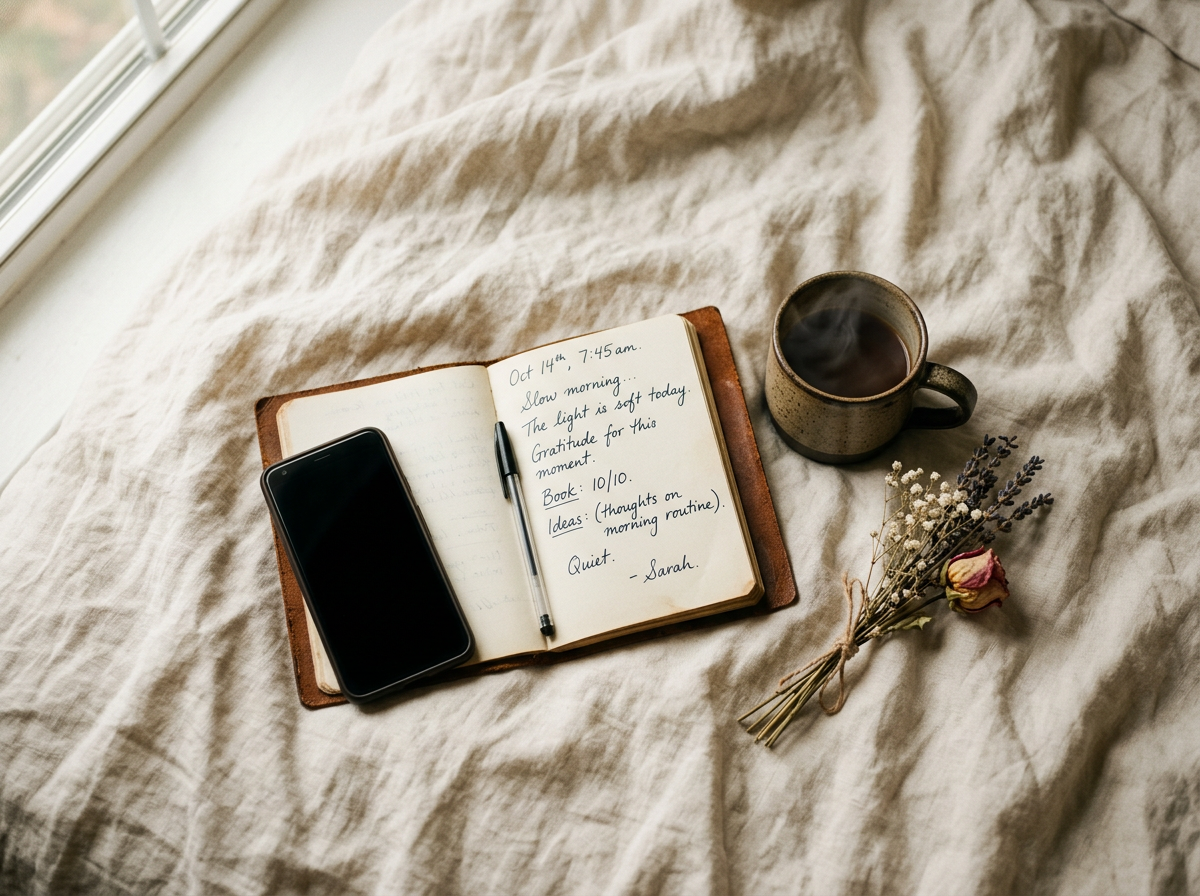 Oct 14th, 7:45 am.
Slow morning...
The light is soft today.
Gratitude for this
moment.
Book: 10/10.
Ideas: (thoughts on
morning routine).
Quiet.
- Sarah.